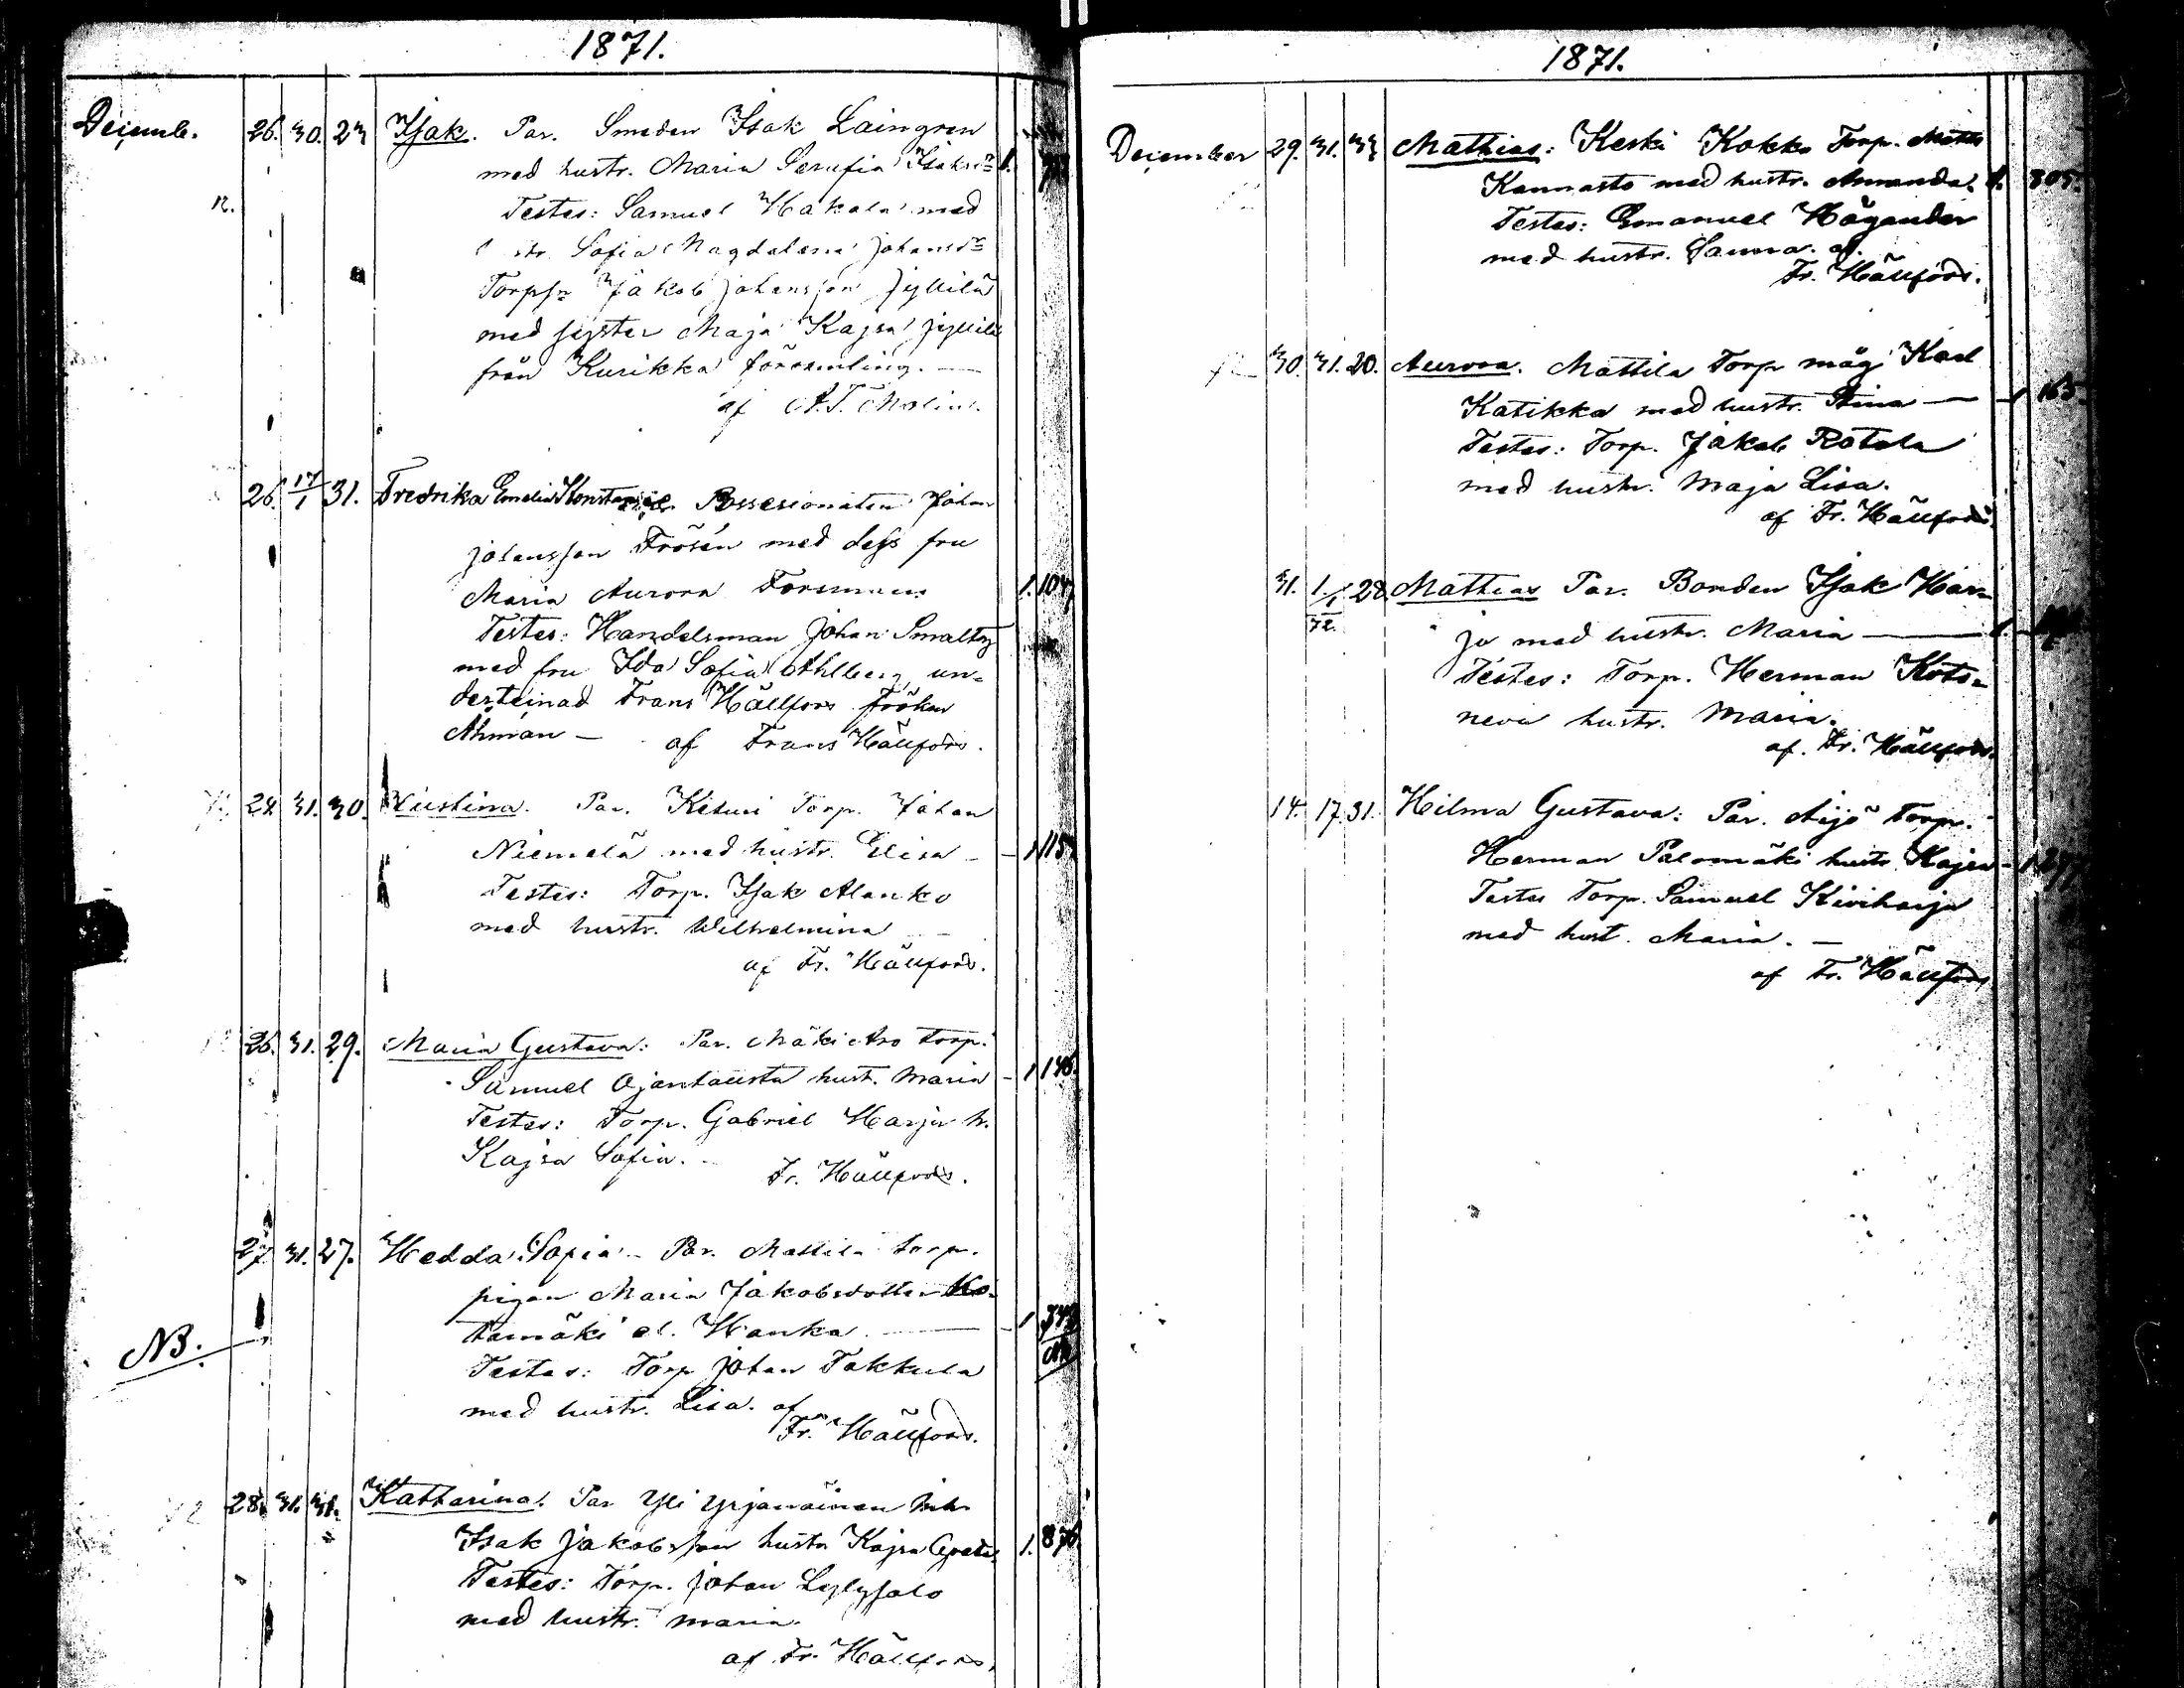 1871.
Decemb. 26. 30. 23 Isak. Par. Smeden Isak Laingren
med hustr. Maria Serafia Isaksdr 1.
12. Testes: Samuel Hakala med
str. Sofia Magdalena Johansdr
Torpsn Jakob Johansson Jyllilä
med syster Maja Kajsa Jyllilä
från Kurikka församling. —
af A.T. Molin.
26. 17/1 31. Fredrika Emelia Possesionaten Johan
Johansson Frösén med dess fru
Maria Aurora Forsman 1. 104
Testes: Handelsman Johan Smaltz
med fru Ida Sofia Ahlberg, un=
derteinad Frans Hällfors fröken
Åhman — af Frans Hällfors.
28 31. 30. Kustina. Par. Keturi Torp. Johan
Niemelä med hustr. Elisa — 1 115
Testes: Torp. Isak Alanko
med hustr. Wilhelmina —
af Fr. Hällfors.
26. 31. 29. Maria Gustava: Par. Mäki Aro torp.
Samuel Ojantausta hust. Maria — 1 146.
Testes: Torp. Gabriel Harju h.
Kajsa Sofia. —
Fr. Hällfors.
27 31. 27. Hedda Sofia — Par. Mattila torp.
pigan Maria Jakobsdotter Ko-
tamäki el. Hanka — 1
NB.
Testes: Torp Johan Takkula
med hustr. Lisa. af
Fr. Hällfors.
12 28. 31. Katharina. Par Yli Yrjanäinen inh.
Isak Jakobsson hustr Kajsa Greta 1. 876
Testes: Torp. Johan Lylysalo
med hustr. Maria.
af Fr. Hällfors.
1871.
December 29. 31. 33 Mathias: Keski Kokko Torp. Matts
Kannasto med hustr. Amanda. 1. 805.
Testes: Emanuel Högander
med hustr. Sanna. af.
Fr. Hällfors.
30. 31. 20. Aurora. Mattila Torp måg Karl
Katikka med hustr. Stina — 1 165
Testes: Torp. Jakob Rotola
med hustr. Maja Lisa.
af Fr. Hällfors
31. 1/1 28 Mathias Par. Bonden Isak Har=
72. ju med hustr. Maria — 1.
Testes: Torp. Herman Koto=
neva hustr. Maria.
af. Fr. Hällfors.
14. 17. 31. Hilma Gustava: Par. Äijö Torp.
Herman Palomäki hustr. Kajsa — 1 277
Testes Torp. Samuel Kiviharju
med hust. Maria. —
af Fr. Hällfors